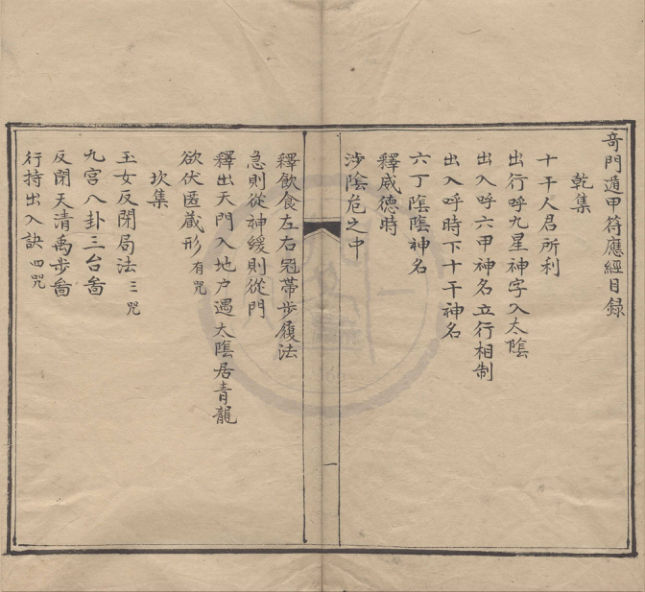 奇門遁甲符應經目録
乾集
十干人君所利
出行呼九星神字入太陰
出入呼六甲神名立行相制
出入呼時下十干神名
六丁陰陰神名
釋威德時
涉陰危之中
一
釋飲食左右冠帶步履法
急則從神緩則從門
釋出天門入地户遇太陰居青龍
欲伏匿藏形有咒
坎集
玉女反閉局法三咒
九宮八卦三台啚
反閉天清禹步啚
行持出入訣四咒